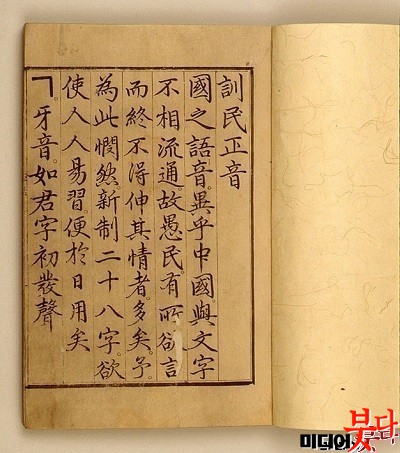 訓民正音
國之語音。異乎中國。與文字
不相流通故愚民。有所欲言
而終不得伸其情者。多矣。予。
為此憫然新制二十八字。欲
使人人易習。便於日用矣
ㄱ。牙音。如君字初發聲
미디어붓다